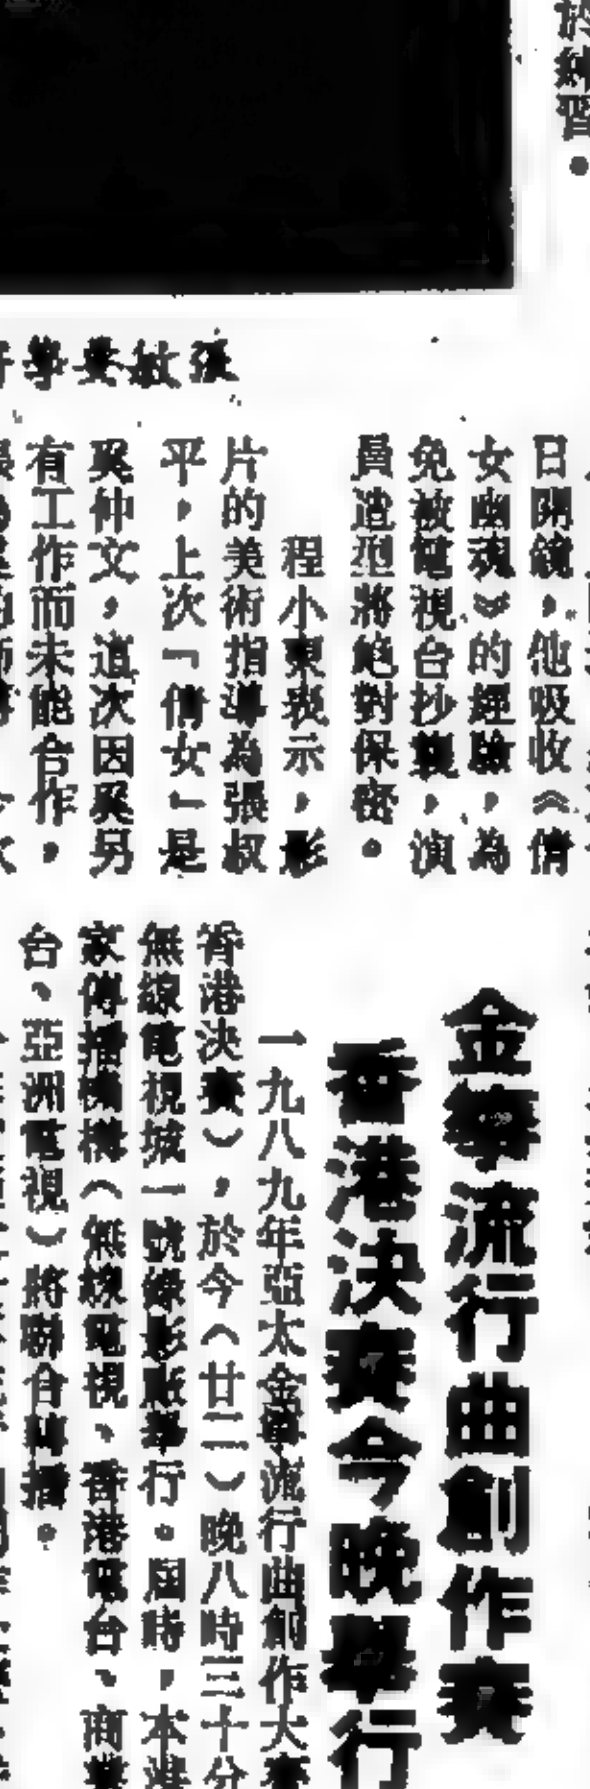 於練習。
張敏要學
日開鏡，他吸收《倩
女幽魂》的經驗，為
免被電視台抄襲，演
員造型將絕對保密。
程小東表示，影
片的美術指導為張叔
平，上次「倩女」是
奚仲文，這次因奚另
有工作而未能合作，
金箏流行曲創作賽
香港決賽今晚舉行
一九八九年亞太金箏流行曲創作大賽
香港決賽），於今（廿二）晚八時三十分
無線電視城一號錄影廠舉行。屆時，本港
家傳播機構（無線電視、香港電台、商業
台、亞洲電視）將聯合轉播。